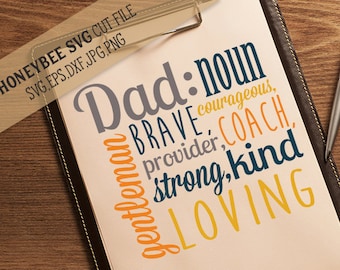 HONEYBEE SVG CUT FILE
SVG, EPS, DXF, JPG, PNG
Dad: noun
courageous,
BRAVE,
provider, COACH,
strong, kind
LOVING
gentleman